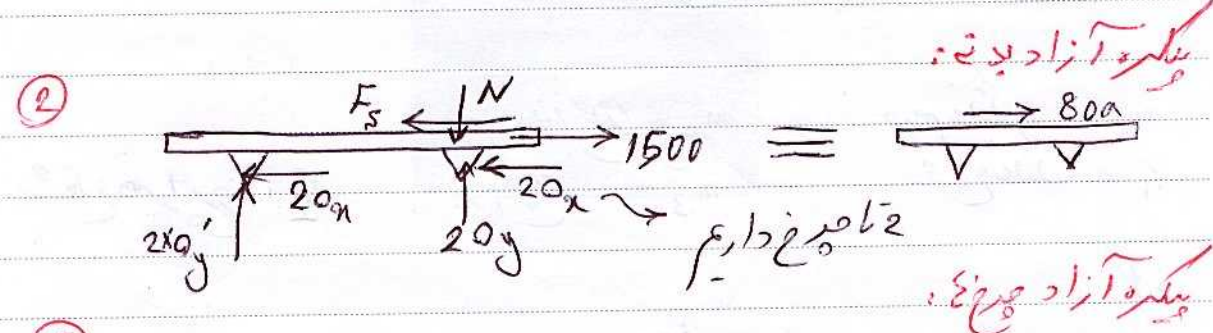 پیکره آزاد بدنه:
② F_s N 1500 ≡ 80a
20x 20x
2×0y' 20y ۲ تا چرخ داریم
پیکره آزاد چرخ: